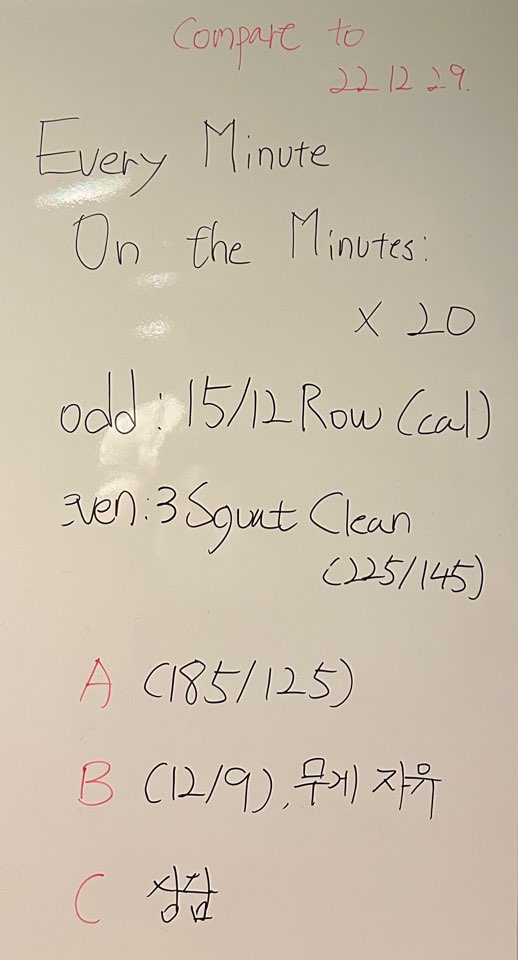 Compare to
22 12 29.
Every Minute
On the Minutes:
x 20
odd : 15/12 Row (cal)
even : 3 Squat Clean
(225/145)
A (185/125)
B (12/9), 무게 자유
C